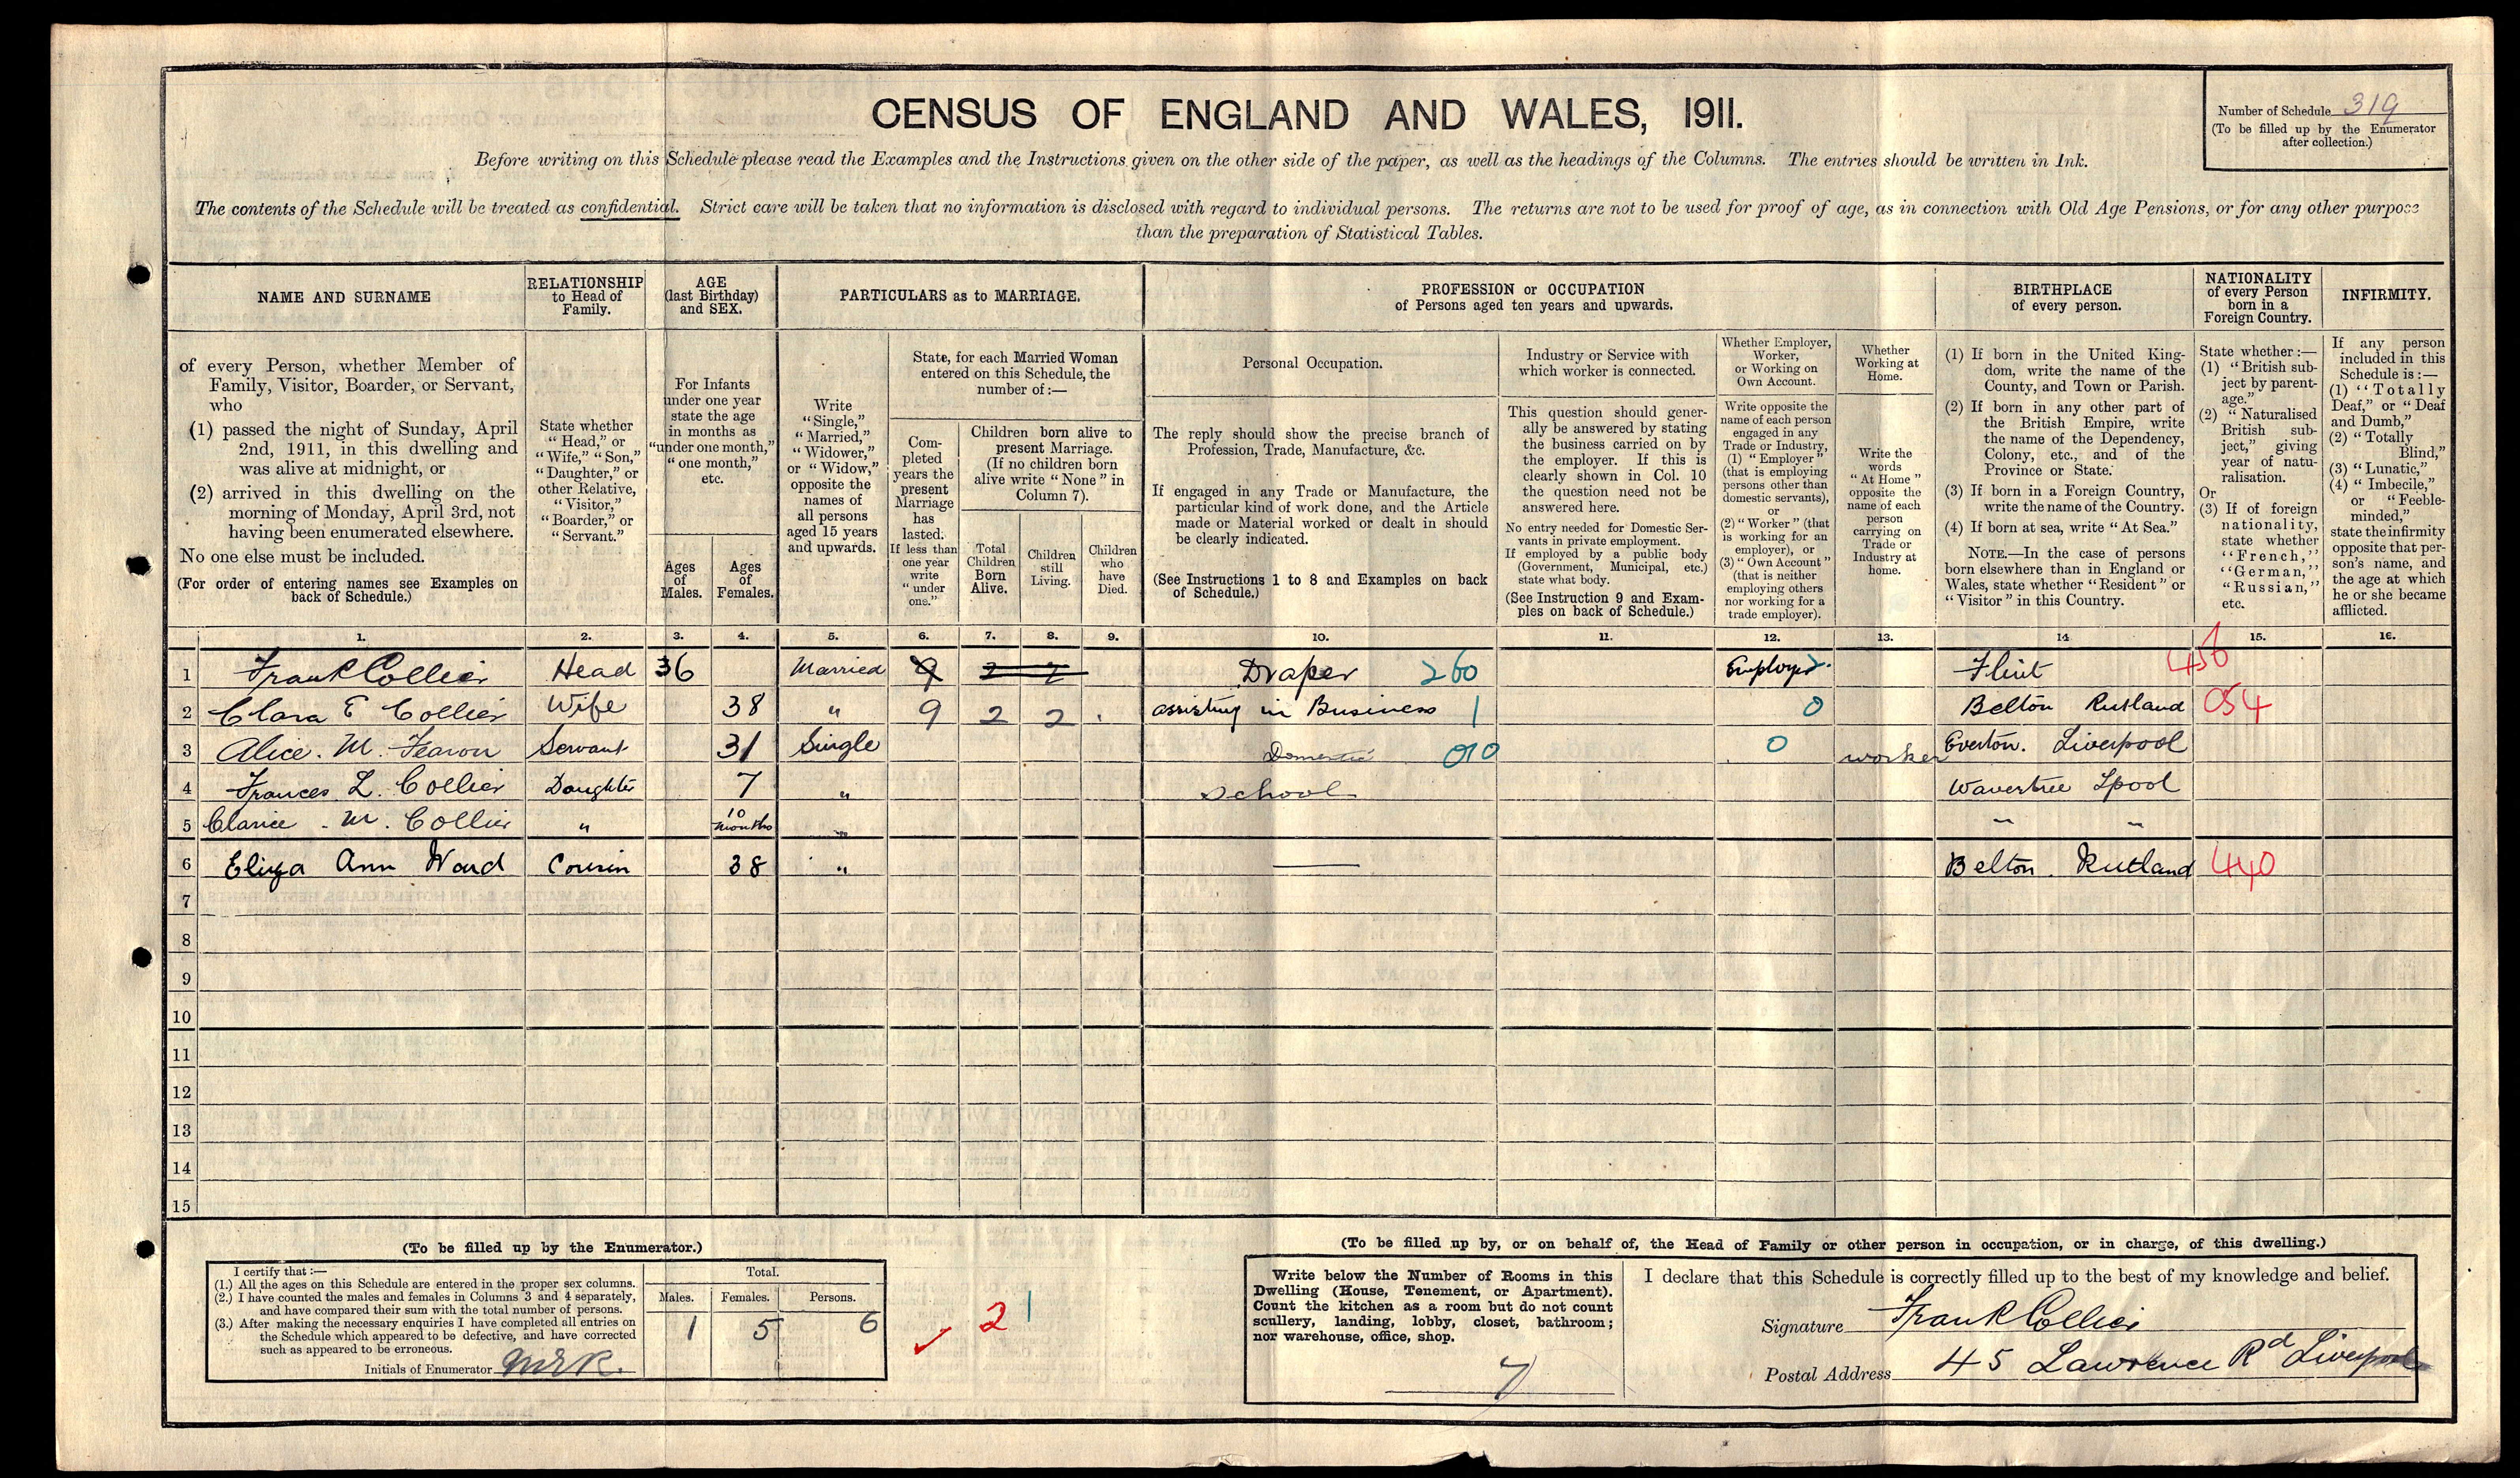 CENSUS OF ENGLAND AND WALES, 1911.
Number of Schedule 319
(To be filled up by the Enumerator
after collection.)
Before writing on this Schedule please read the Examples and the Instructions given on the other side of the paper, as well as the headings of the Columns. The entries should be written in Ink.
The contents of the Schedule will be treated as confidential. Strict care will be taken that no information is disclosed with regard to individual persons. The returns are not to be used for proof of age, as in connection with Old Age Pensions, or for any other purpose
than the preparation of Statistical Tables.
NAME AND SURNAME
of every Person, whether Member of
Family, Visitor, Boarder, or Servant,
who
(1) passed the night of Sunday, April
2nd, 1911, in this dwelling and
was alive at midnight, or
(2) arrived in this dwelling on the
morning of Monday, April 3rd, not
having been enumerated elsewhere.
No one else must be included.
(For order of entering names see Examples on
back of Schedule.)
RELATIONSHIP
to Head of
Family.
State whether
"Head," or
"Wife," "Son,"
"Daughter," or
other Relative,
"Visitor,"
"Boarder," or
"Servant."
AGE
(last Birthday)
and SEX.
For Infants
under one year
state the age
in months as
"under one month,"
"one month,"
etc.
Ages
of
Males.
Ages
of
Females.
PARTICULARS as to MARRIAGE.
Write
"Single,"
"Married,"
"Widower,"
or "Widow,"
opposite the
names of
all persons
aged 15 years
and upwards.
State, for each Married Woman
entered on this Schedule, the
number of:—
Com-
pleted
years the
present
Marriage
has
lasted.
If less than
one year
write
"under
one."
Children born alive to
present Marriage.
(If no children born
alive write "None" in
Column 7).
Total
Children
Born
Alive.
Children
still
Living.
Children
who
have
Died.
PROFESSION or OCCUPATION
of Persons aged ten years and upwards.
Personal Occupation.
The reply should show the precise branch of
Profession, Trade, Manufacture, &c.
If engaged in any Trade or Manufacture, the
particular kind of work done, and the Article
made or Material worked or dealt in should
be clearly indicated.
(See Instructions 1 to 8 and Examples on back
of Schedule.)
Industry or Service with
which worker is connected.
This question should gener-
ally be answered by stating
the business carried on by
the employer. If this is
clearly shown in Col. 10
the question need not be
answered here.
No entry needed for Domestic Ser-
vants in private employment.
If employed by a public body
(Government, Municipal, etc.)
state what body.
(See Instruction 9 and Exam-
ples on back of Schedule.)
Whether Employer,
Worker,
or Working on
Own Account.
Write opposite the
name of each person
engaged in any
Trade or Industry,
(1) "Employer"
(that is employing
persons other than
domestic servants),
or
(2) "Worker" (that
is working for an
employer), or
(3) "Own Account"
(that is neither
employing others
nor working for a
trade employer).
Whether
Working at
Home.
Write the
words
"At Home"
opposite the
name of each
person
carrying on
Trade or
Industry at
home.
BIRTHPLACE
of every person.
(1) If born in the United King-
dom, write the name of the
County, and Town or Parish.
(2) If born in any other part of
the British Empire, write
the name of the Dependency,
Colony, etc., and of the
Province or State.
(3) If born in a Foreign Country,
write the name of the Country.
(4) If born at sea, write "At Sea."
NOTE.—In the case of persons
born elsewhere than in England or
Wales, state whether "Resident" or
"Visitor" in this Country.
NATIONALITY
of every Person
born in a
Foreign Country.
State whether:—
(1) "British sub-
ject by parent-
age."
(2) "Naturalised
British sub-
ject," giving
year of natu-
ralisation.
Or
(3) If of foreign
nationality,
state whether
"French,"
"German,"
"Russian,"
etc.
INFIRMITY.
If any person
included in this
Schedule is:—
(1) "Totally
Deaf," or "Deaf
and Dumb,"
(2) "Totally
Blind,"
(3) "Lunatic,"
(4) "Imbecile,"
or "Feeble-
minded,"
state the infirmity
opposite that per-
son's name, and
the age at which
he or she became
afflicted.
1. 2. 3. 4. 5. 6. 7. 8. 9. 10. 11. 12. 13. 14 15. 16.
1 Frank Collier Head 36 Married 9 2 2 Draper 260 Employer Flint 456
2 Clara E Collier Wife 38 " 9 2 2 . assisting in Business 1 0 Belton Rutland 054
3 Alice. M. Fearon Servant 31 Single Domestic 010 0 worker Everton. Liverpool
4 Frances L. Collier Daughter 7 " School Wavertree Lpool
5 Clarice . M. Collier " 10 months " " "
6 Eliza Ann Ward Cousin 38 " — Belton. Rutland 440
7
8
9
10
11
12
13
14
15
(To be filled up by the Enumerator.)
I certify that:—
(1.) All the ages on this Schedule are entered in the proper sex columns.
(2.) I have counted the males and females in Columns 3 and 4 separately,
and have compared their sum with the total number of persons.
(3.) After making the necessary enquiries I have completed all entries on
the Schedule which appeared to be defective, and have corrected
such as appeared to be erroneous.
Initials of Enumerator
Total.
Males. Females. Persons.
1 5 6
2 1
(To be filled up by, or on behalf of, the Head of Family or other person in occupation, or in charge, of this dwelling.)
Write below the Number of Rooms in this
Dwelling (House, Tenement, or Apartment).
Count the kitchen as a room but do not count
scullery, landing, lobby, closet, bathroom;
nor warehouse, office, shop.
7
I declare that this Schedule is correctly filled up to the best of my knowledge and belief.
Signature Frank Collier
Postal Address 45 Lawrence Rd Liverpool